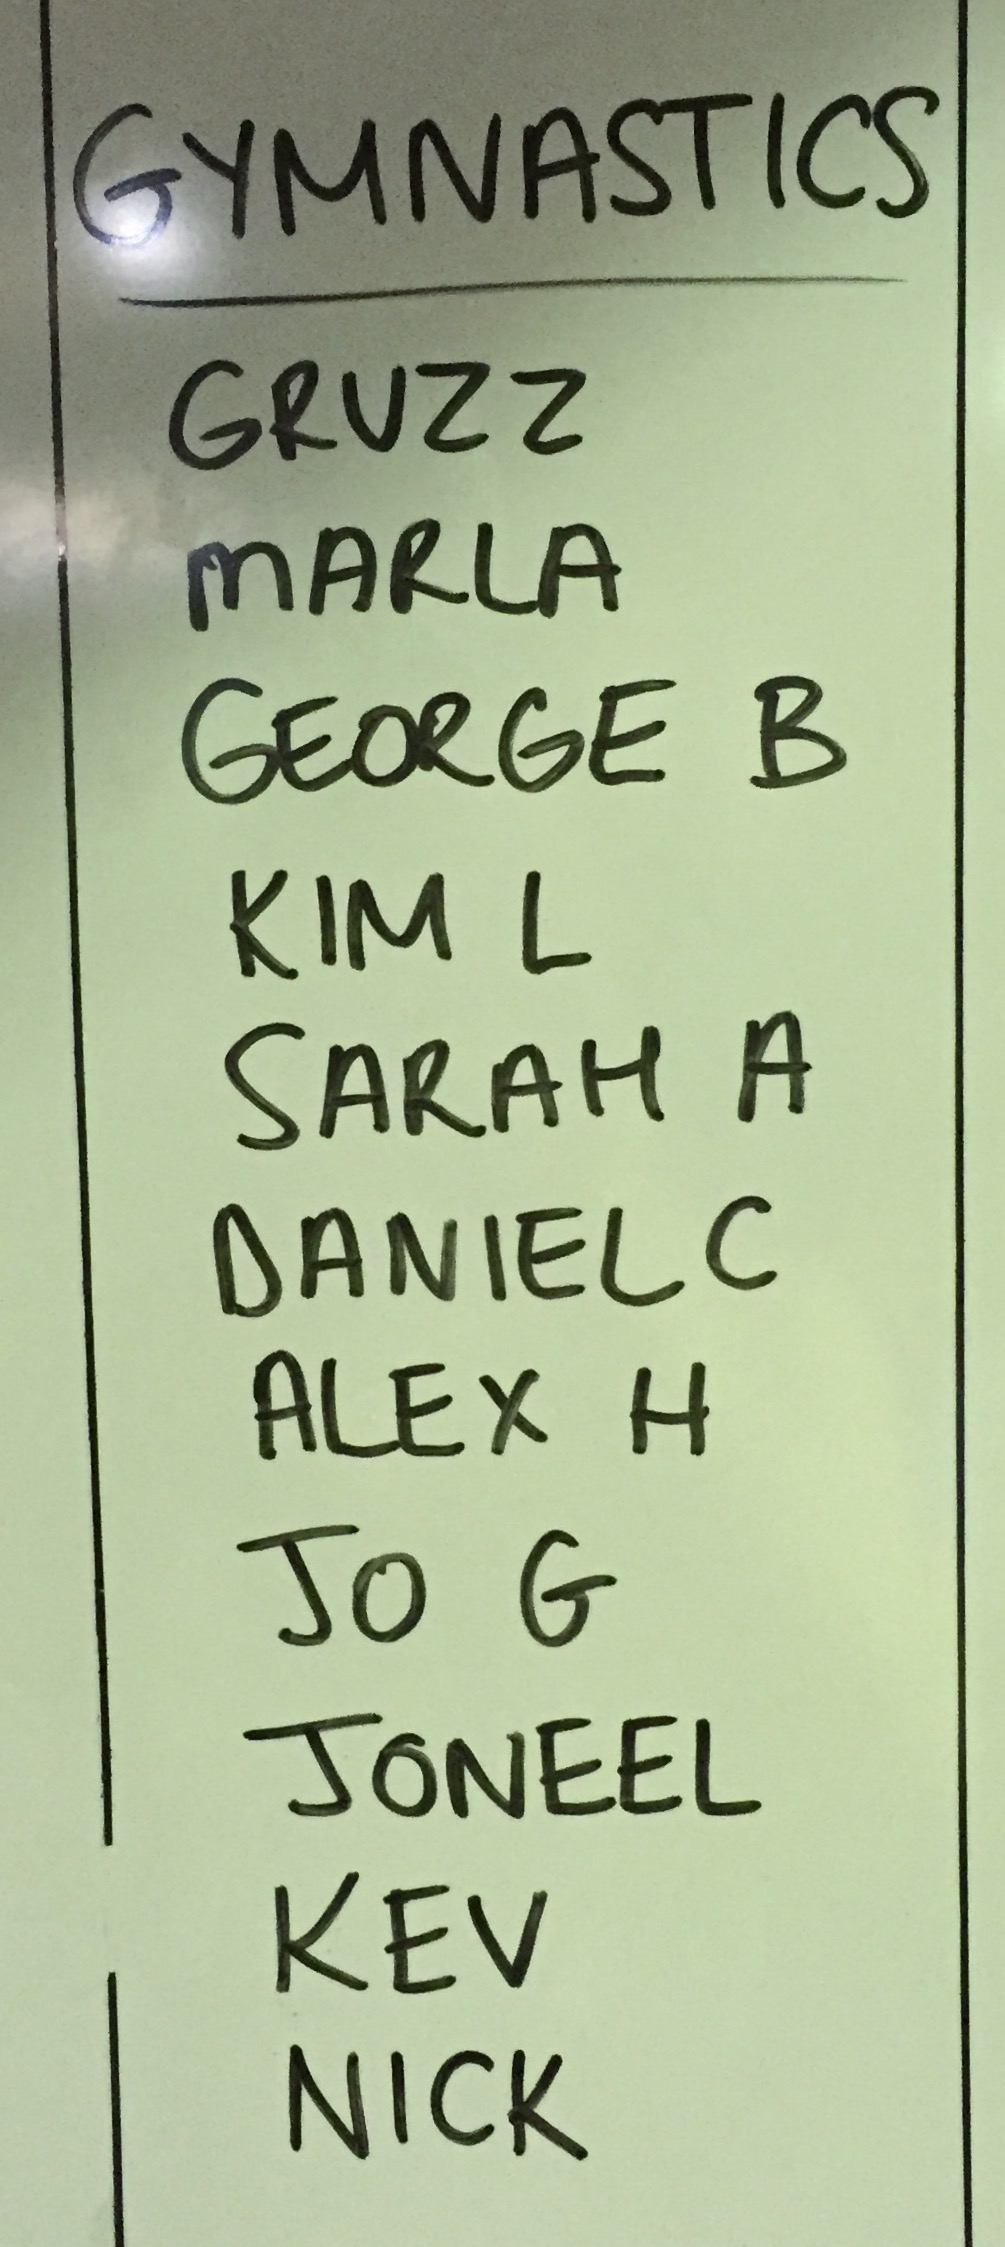 GYMNASTICS
GRUZZ
MARLA
GEORGE B
KIM L
SARAH A
DANIEL C
ALEX H
JO G
JONEEL
KEV
NICK